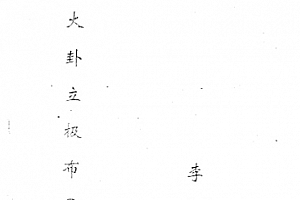 李
大卦立极布